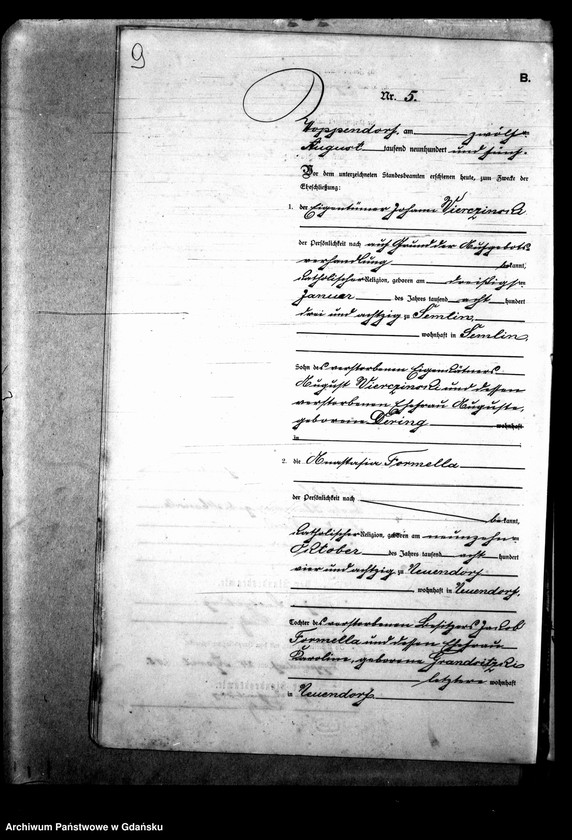 9
B.
Nr. 5.
Hoppendorf, am zwölften
August tausend neunhundert und fünf.
Vor dem unterzeichneten Standesbeamten erschienen heute, zum Zwecke der
Eheschließung:
1. der Eigentümer Johann Vierczinski
der Persönlichkeit nach auf Grund der Aufgebots
verhandlung bekannt,
katholischer Religion, geboren am dreißigsten
Januar des Jahres tausend acht hundert
drei und achtzig zu Semlin
wohnhaft in Semlin
Sohn des verstorbenen Eigenkätners
August Vierczinski und dessen
verstorbenen Ehefrau Auguste,
geborenen Dering wohnhaft
in
2. die Anastasia Formella
der Persönlichkeit nach
bekannt,
katholischer Religion, geboren am neunzehnten
Oktober des Jahres tausend acht hundert
vier und achtzig zu Neuendorf
wohnhaft in Neuendorf
Tochter des verstorbenen Besitzers Jakob
Formella und dessen Ehefrau
Karoline, geborene
letztere wohnhaft
in Neuendorf
Archiwum Państwowe w Gdańsku